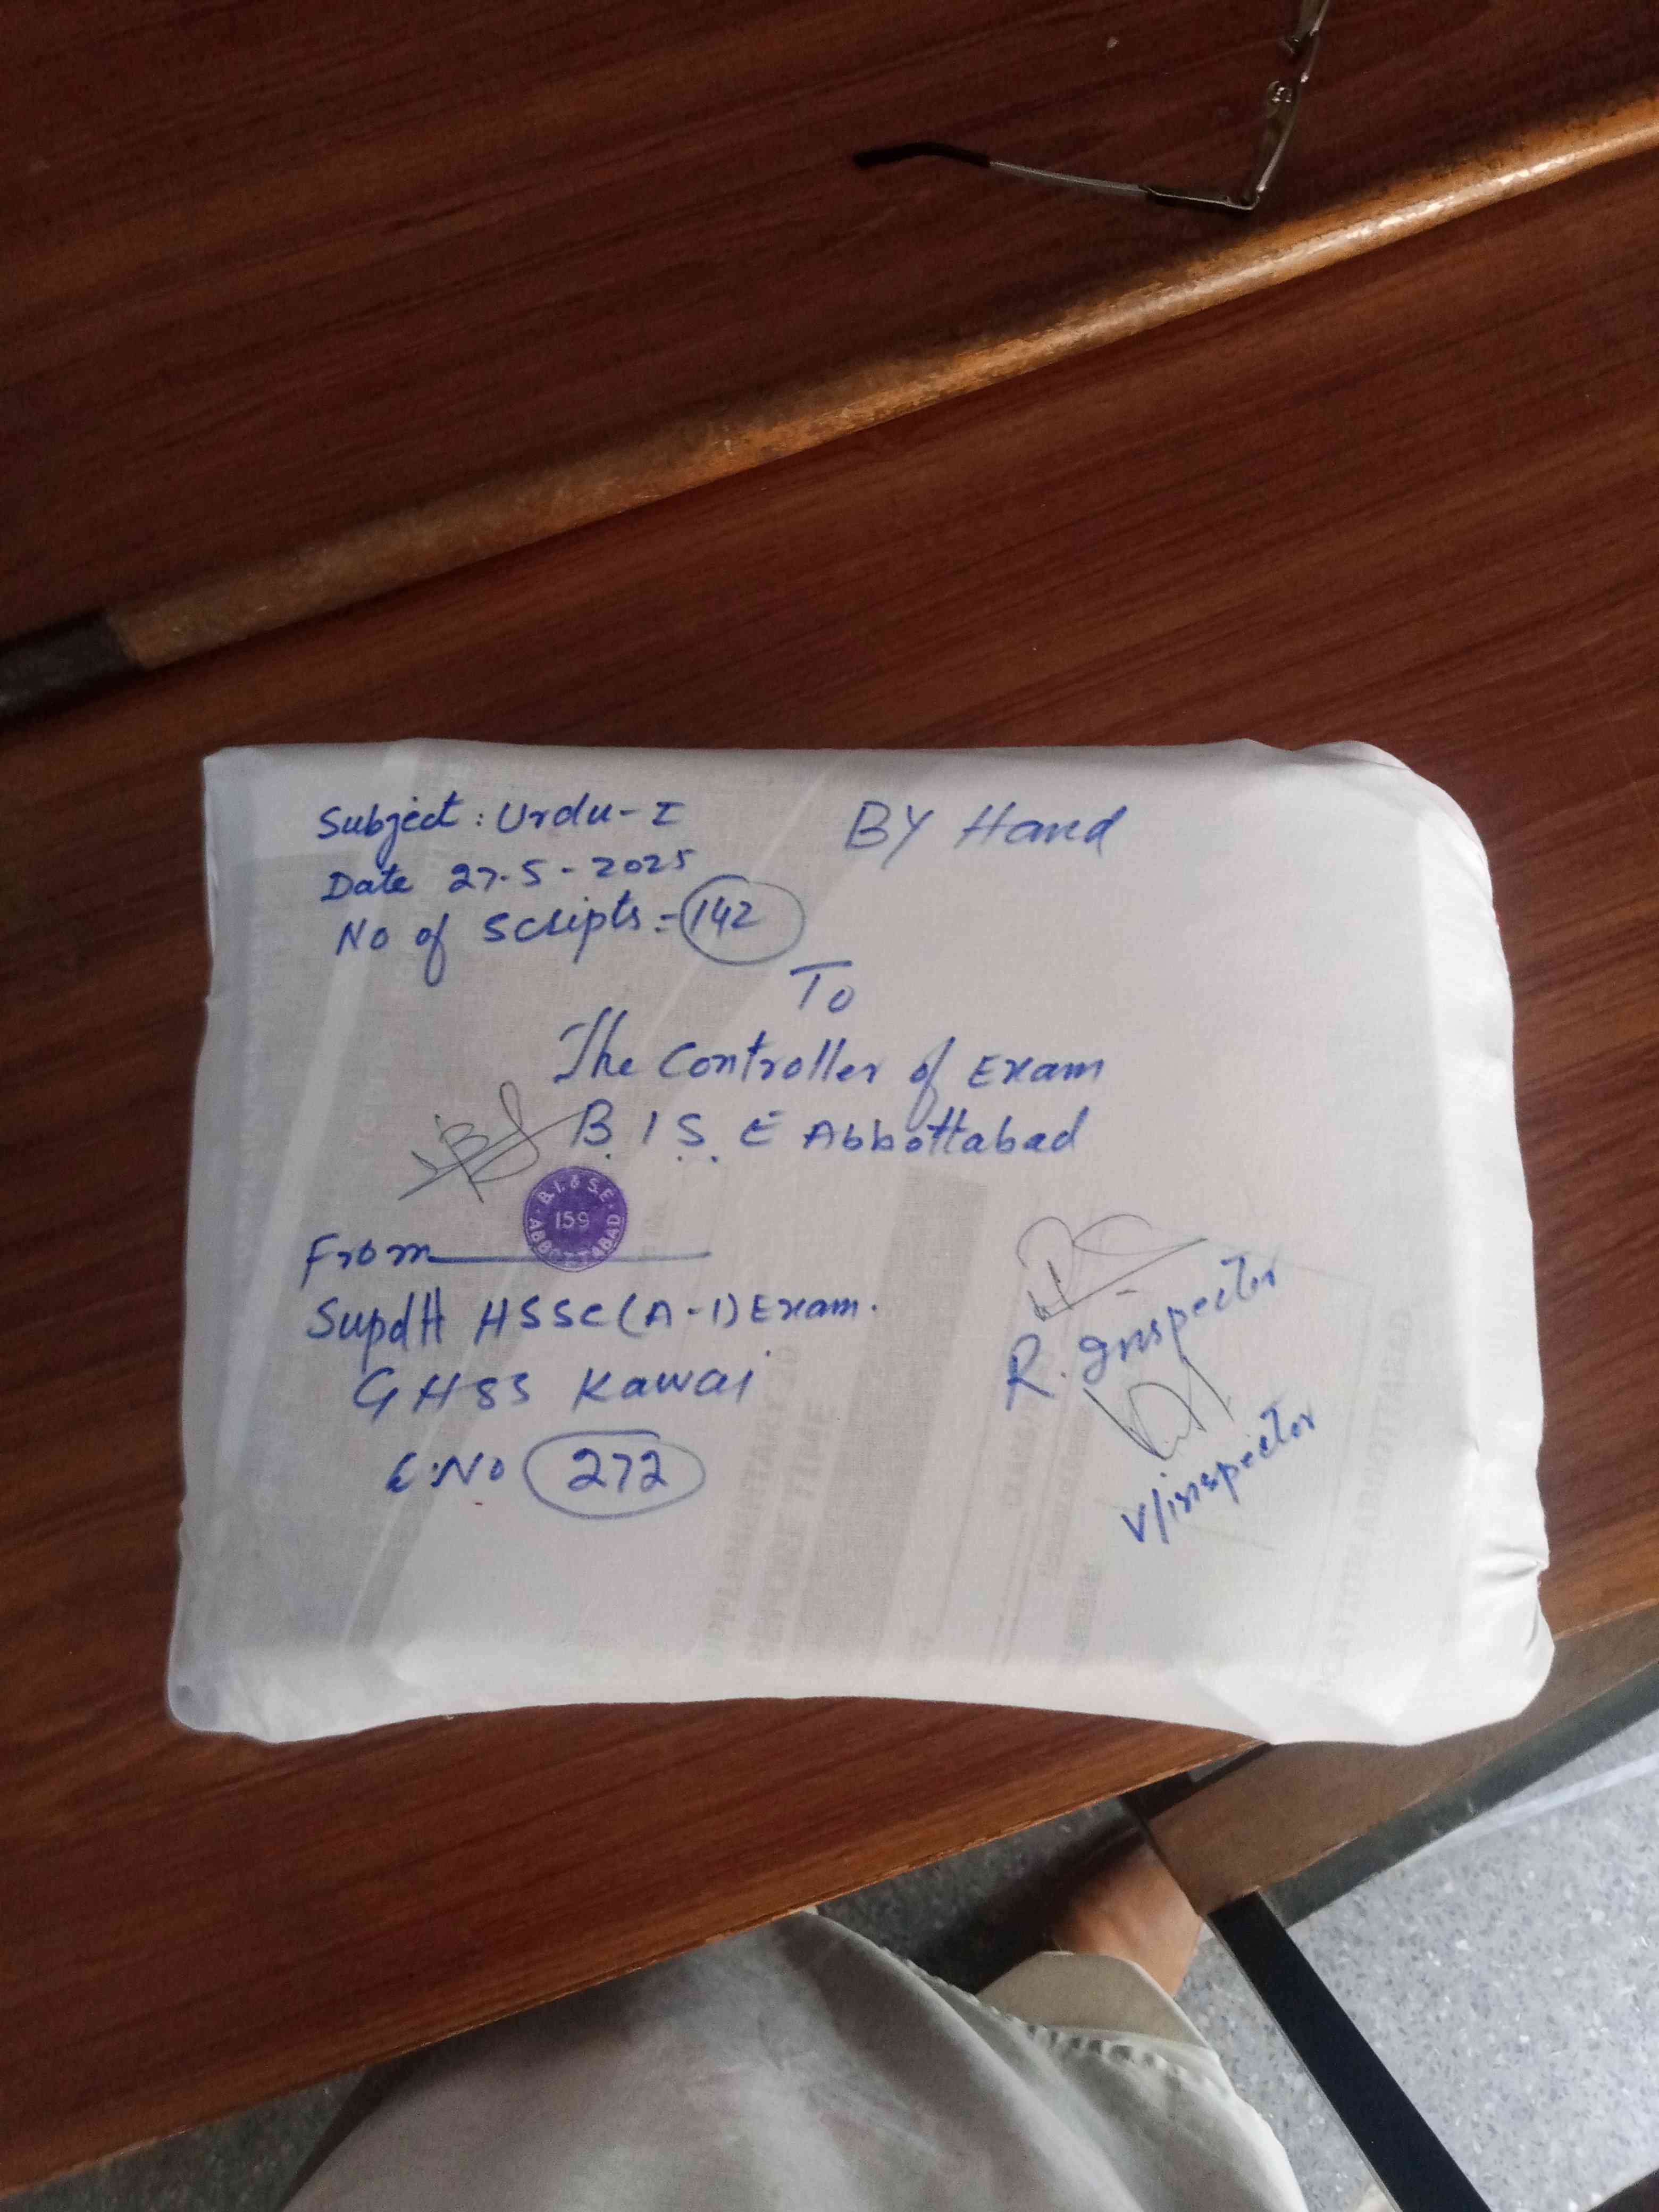 Subject: Urdu-I
BY Hand
Date 27-5-2025
No of Scripts:- 142
To
The Controller of Exam
B.I.S.E Abbottabad
B.I.& S.E.
159
ABBOTTABAD
From
Supdtt HSSC(A-1) Exam.
GHSS Kawai
C.No 272
R. Inspector
V/inspector